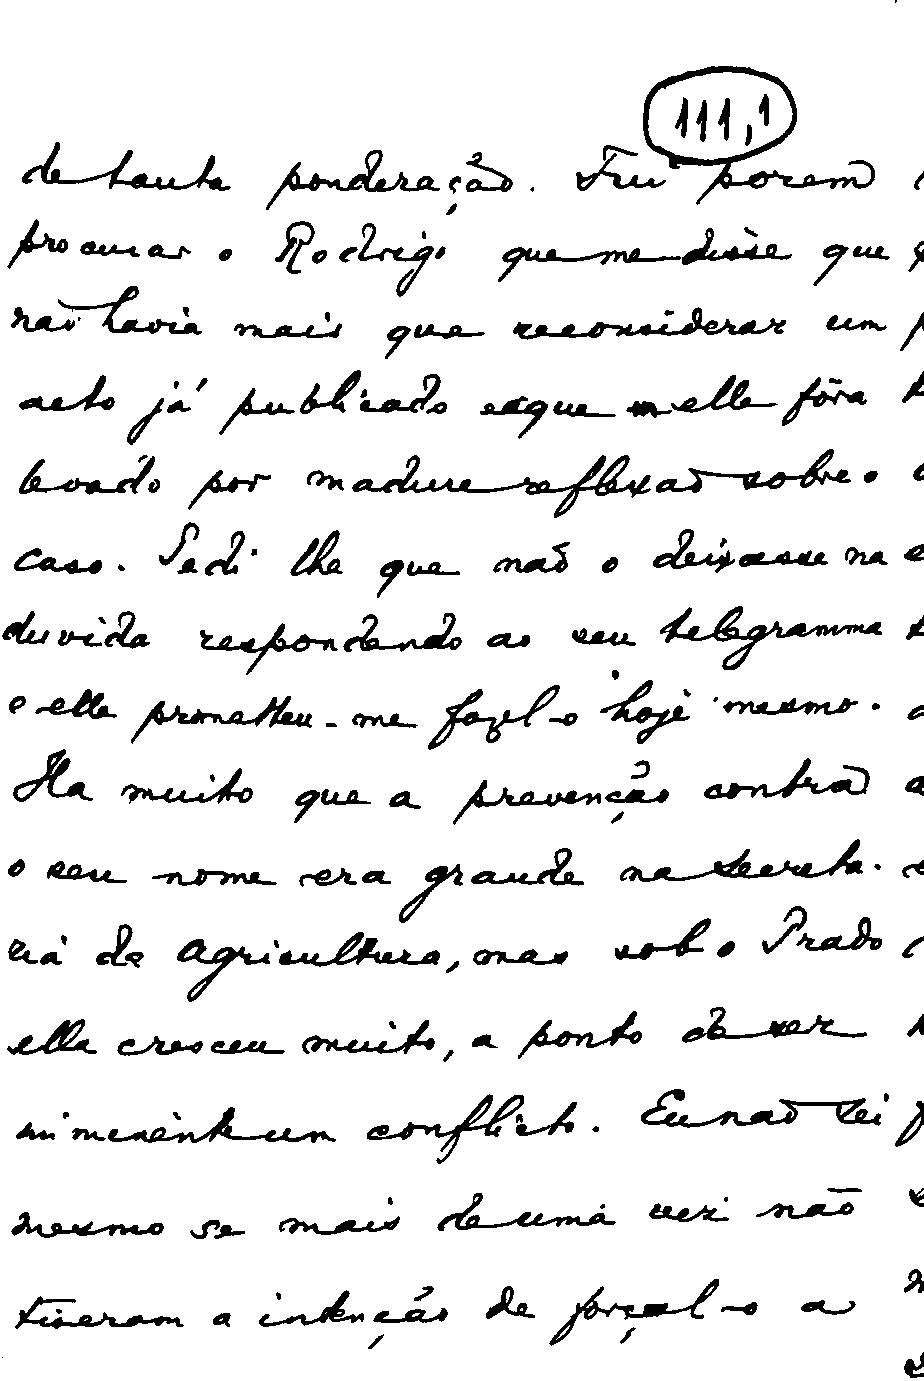 111,1
de tanta ponderação. Fui porem
procurar o Rodrigo que me disse que
não havia mais que reconsiderar um
acto já publicado e a que elle fôra
levado por madura reflexão sobre o
caso. Pedi lhe que não o deixasse na
duvida respondendo ao seu telegramma
e elle prometteu-me fazel-o hoje mesmo.
Ha muito que a prevenção contra
o seu nome era grande na Secreta-
ria de Agricultura, mas sob o Prado
ella cresceu muito, a ponto de ser
imminente um conflicto. Eu não sei
mesmo se mais de uma vez não
tiveram a intenção de forçal-o a